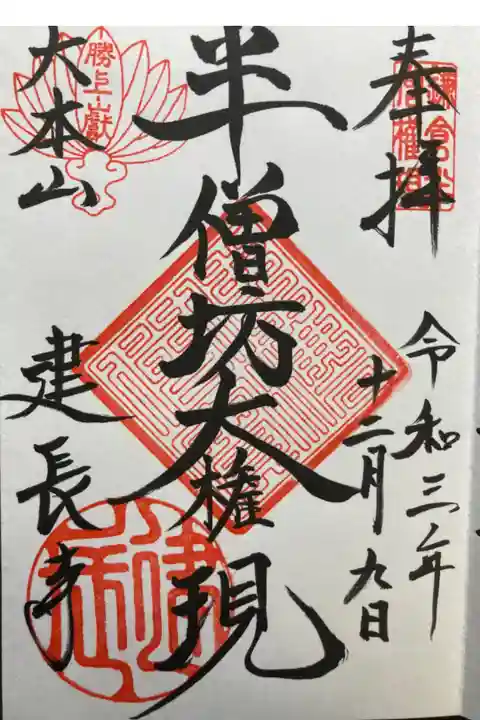 奉拝
令和三年
十二月九日
半僧坊大権現
大本山
建長寺
勝上山献